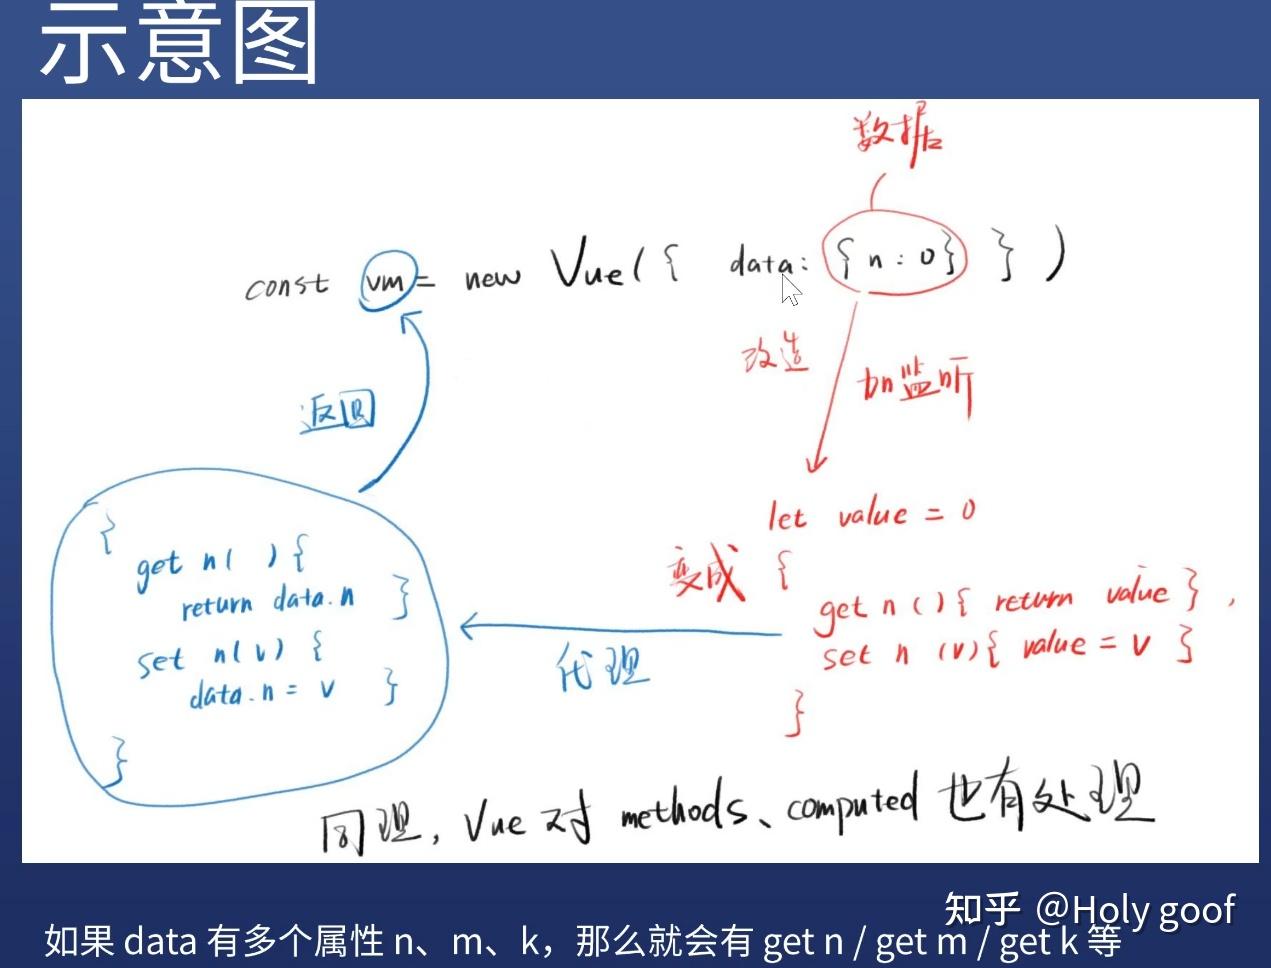 示意图
数据
const vm = new Vue({ data: { n : 0 } })
改造
加监听
返回
let value = 0
变成 {
get n ( ) { return value } ,
set n (v) { value = v }
}
代理
{
get n( ) {
return data.n }
set n(v) {
data.n = v }
}
同理, Vue 对 methods、computed 也有处理
知乎 @Holy goof
如果 data 有多个属性 n、m、k，那么就会有 get n / get m / get k 等